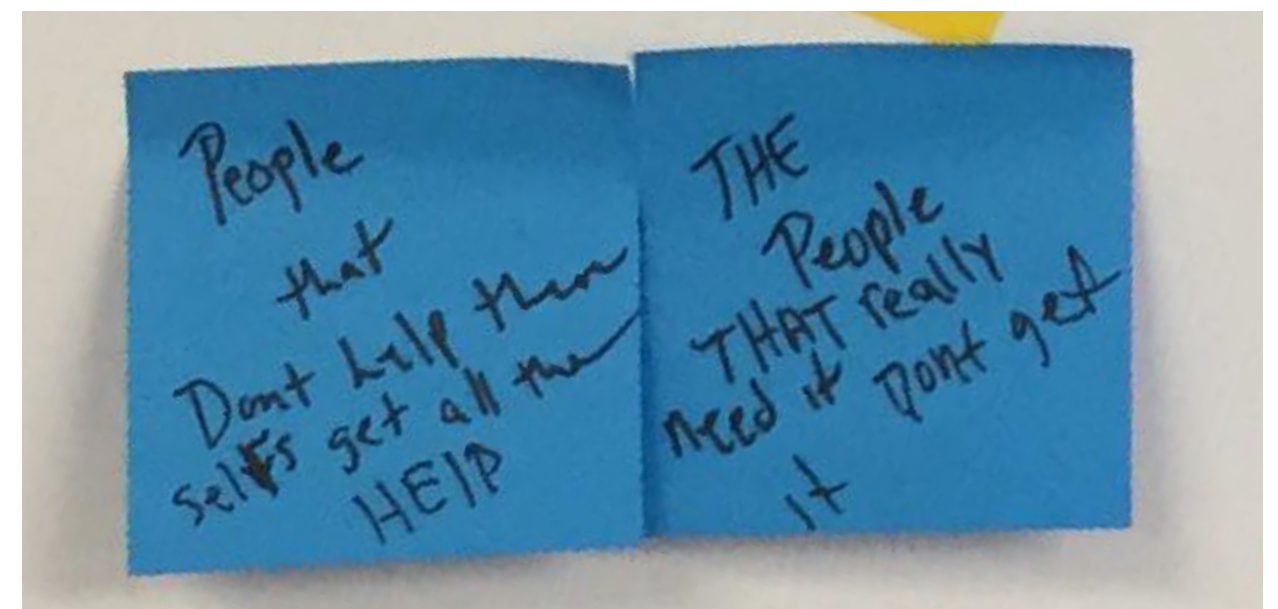 People
that
Dont help them
selfs get all the
HElP
THE
People
THAT really
need it Dont get
it